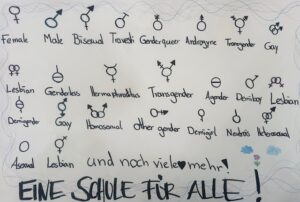 Female Male Bisexual Travesti Genderqueer Androgyne Transgender Gay
Lesbian Genderless Hermaphroditus Transgender Agender Demiboy Lesbian
Demigender Gay Homosexual Other gender Demigirl Neutrois Heterosexual
Asexual Lesbian und noch viele mehr!
EINE SCHULE FÜR ALLE!